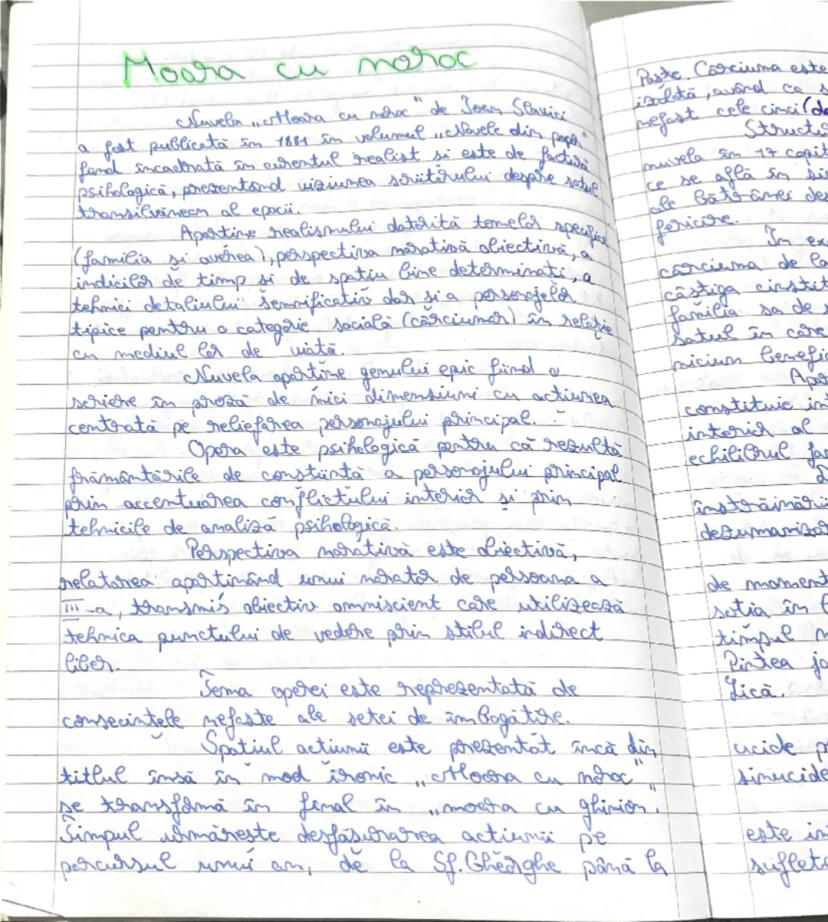 Moara cu noroc
Nuvela „Moara cu noroc" de Ioan Slavici
a fost publicată în 1881 în volumul „Novele din popor"
fiind încadrată în curentul realist și este de factură
psihologică, prezentând viziunea scriitorului despre satul
transilvănean al epocii.
Aparține realismului datorită temelor specifice
(familia și averea), perspectiva narativă obiectivă, a
indicilor de timp și de spațiu bine determinați, a
tehnici detaliului semnificativ dar și a personajelor
tipice pentru o categorie socială (cârciumar) în relație
cu mediul lor de viață.
Nuvela aparține genului epic fiind o
scriere în proză de mici dimensiuni cu acțiunea
centrată pe reliefarea personajului principal.
Opera este psihologică pentru că rezultă
frământările de conștiință a personajului principal
prin accentuarea conflictului interior și prin
tehnicile de analiză psihologică.
Perspectiva narativă este obiectivă,
relatarea aparținând unui narator de persoana a
III-a, transmis obiectiv omniscient care utilizează
tehnica punctului de vedere prin stilul indirect
liber.
Tema operei este reprezentată de
consecințele nefaste ale setei de îmbogățire.
Spațiul acțiunii este prezentat încă din
titlul însă în mod ironic „Moara cu noroc"
se transformă în final în „moara cu ghinion".
Timpul urmărește desfășurarea acțiunii pe
parcursul unui an, de la Sf. Gheorghe până la
Paște. Cârciuma este
izolată, având ca
nefast cele cinci (de
nuvela în 17 capit
ce se află în
ale bătrânei des
fericire.
În ex
cârciuma de la
câștiga cinstit
familia sa de
satul în care
niciun benefi
Apar
constituie in
interior al
echilibrul
înstrăinării
dezumanizar
de moment
soția în
timpul
Pintea
Lică.
ucide
sinucide
este in
suflete